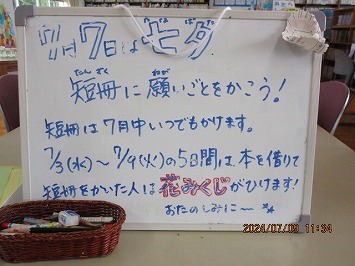 7月7日は七夕
たなばた
たんざく ねが
短冊に願いごとをかこう!
短冊は7月中いつでもかけます。
7/3(水)~7/9(火)の5日間は本を借りて
短冊をかいた人は花みくじがひけます!
おたのしみに~
2024/07/09 11:34